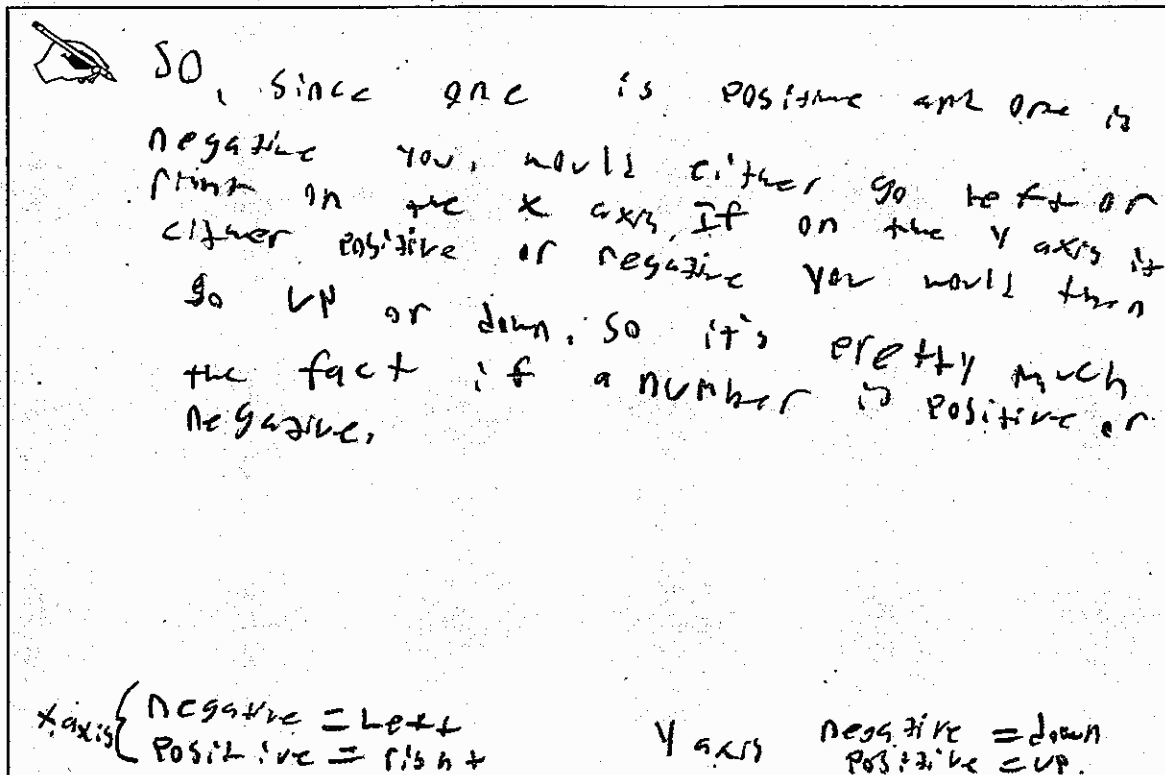 So, since one is positive and one is
negative you, would either go left or
right on the x axis. If on the Y axis it
either positive or negative you would then
go up or down. So it's pretty much
the fact if a number is positive or
negative.
x axis { negative = Left
positive = right
Y axis negative = down
positive = up.